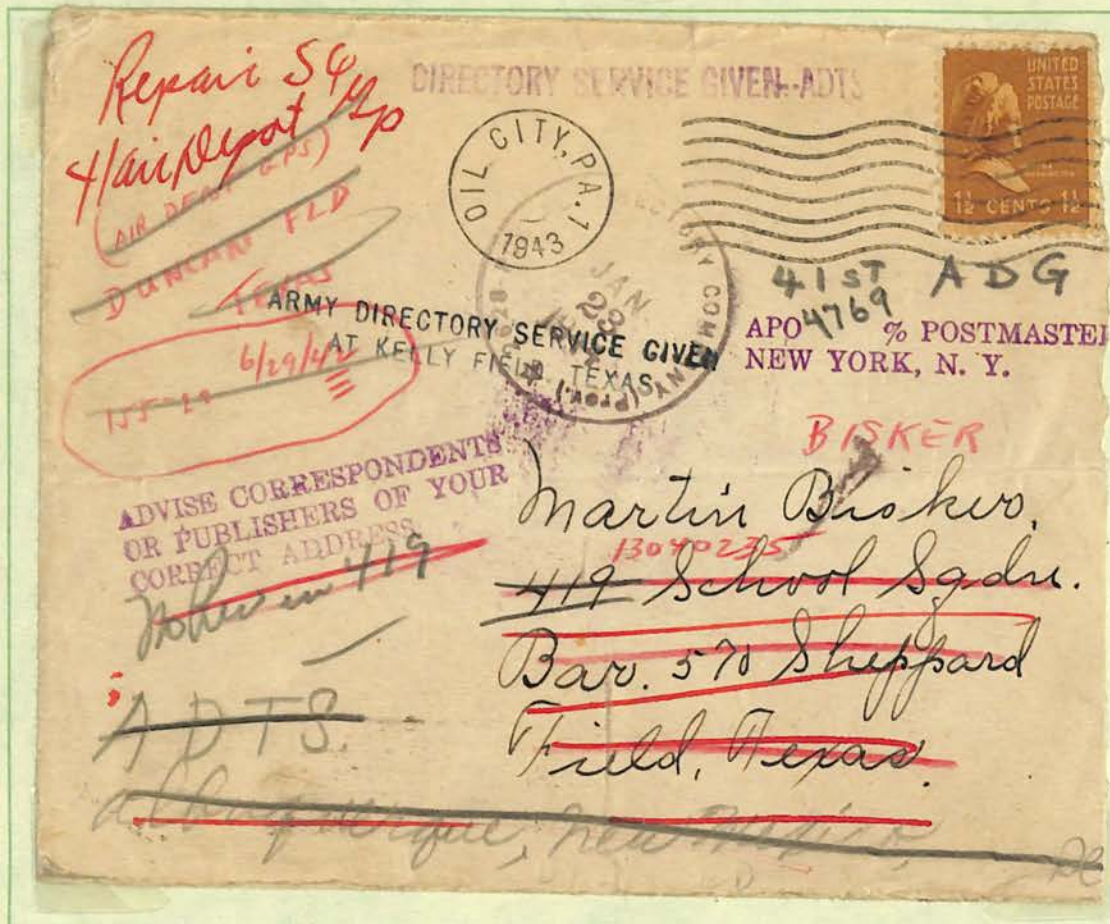 Repair Sq
41 Air Depot Gp
(AIR DEPOT GPS)
DUNCAN FLD
TEXAS
DIRECTORY SERVICE GIVEN--ADTS
OIL CITY, PA. 1
1943
UNITED
STATES
POSTAGE
1½ CENTS 1½
JAN
ARMY DIRECTORY SERVICE GIVEN
AT KELLY FIELD, TEXAS
41ST ADG
APO 4769 % POSTMASTER
NEW YORK, N. Y.
6/29/42
ADVISE CORRESPONDENTS
OR PUBLISHERS OF YOUR
CORRECT ADDRESS
419
BISKER
Martin Bisker,
13040235
419 School Sqdn.
Bar. 570 Sheppard
Field, Texas.
ADTS.
Albuquerque, New Mexico,